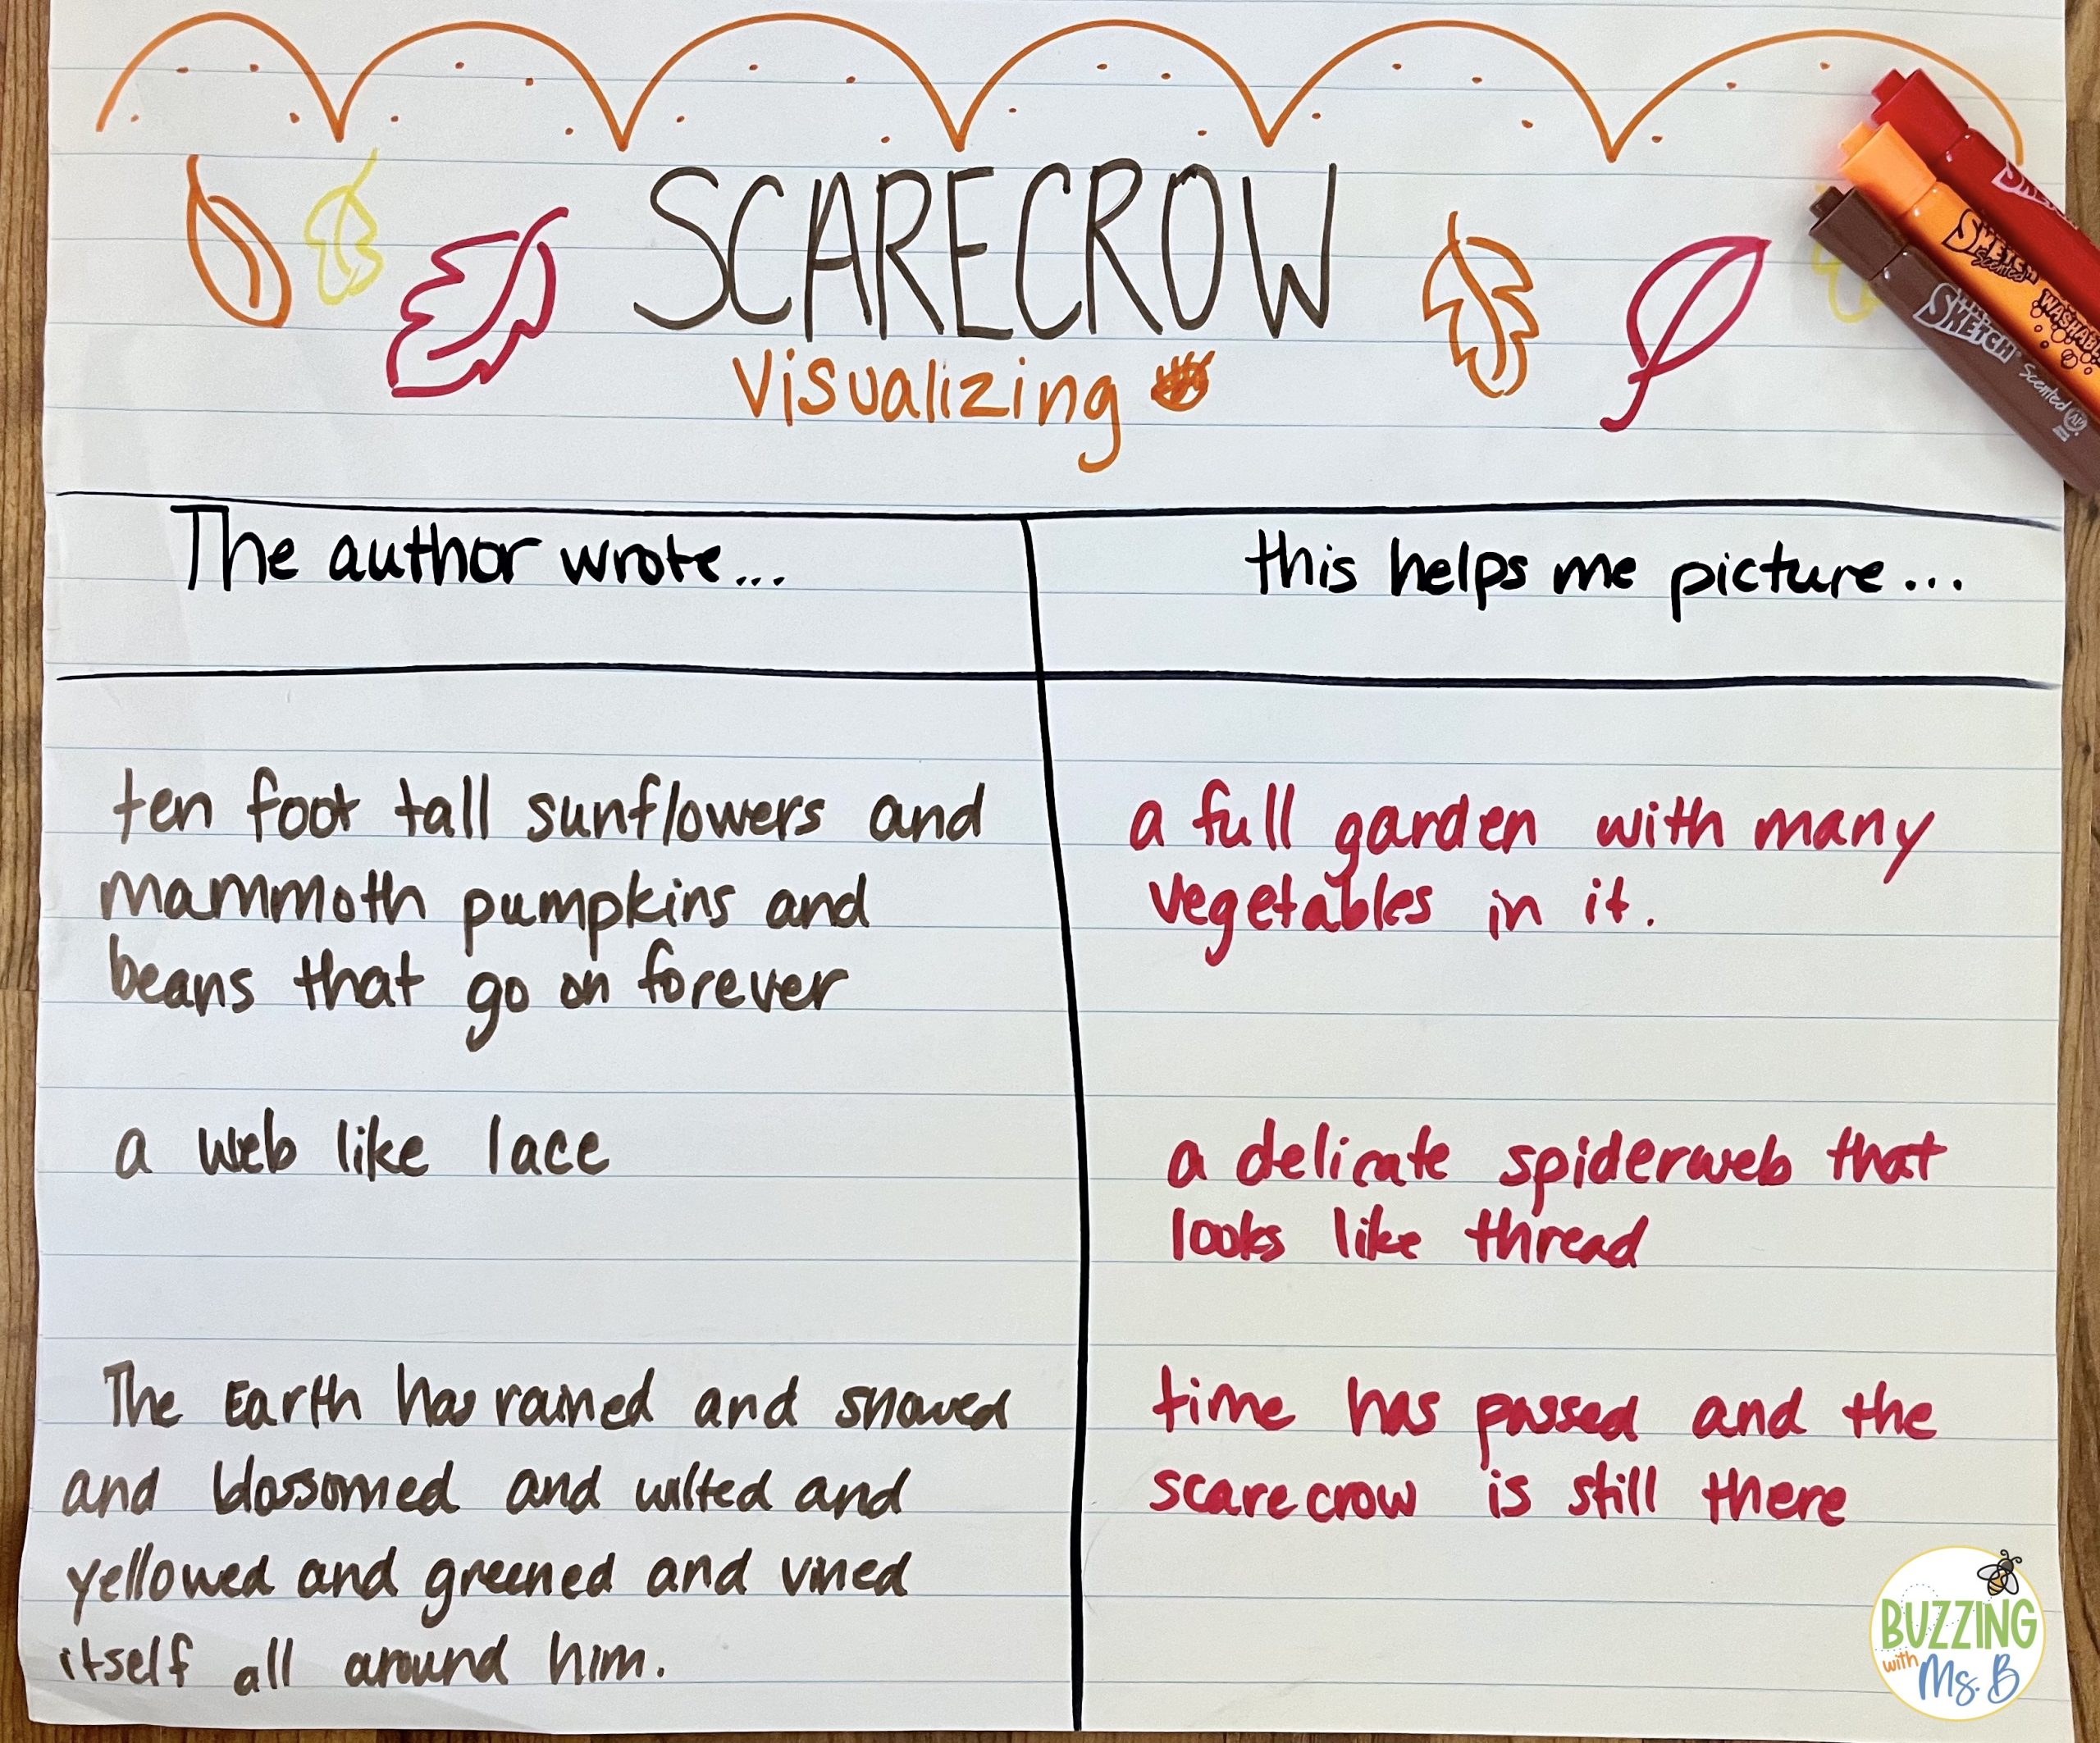 SCARECROW
Visualizing
The author wrote...
this helps me picture...
ten foot tall sunflowers and
mammoth pumpkins and
beans that go on forever
a full garden with many
vegetables in it.
a web like lace
a delicate spiderweb that
looks like thread
The Earth has rained and snowed
and blossomed and wilted and
yellowed and greened and vined
itself all around him.
time has passed and the
scarecrow is still there
SKETCH
Scented
WASHABLE
SKETCH
Scented
BUZZING
with Ms. B